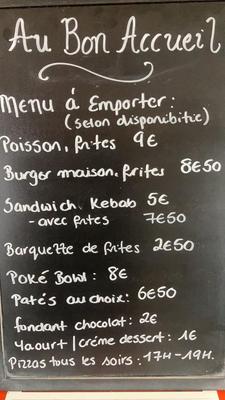 Au Bon Accueil
Menu à Emporter :
(selon disponibitie)
Poisson, frites 9€
Burger maison, frites 8€50
Sandwich Kebab 5€
- avec frites 7€50
Barquette de frites 2€50
Poké Bowl : 8€
Patés au choix : 6€50
fondant chocolat : 2€
Yaourt | crème dessert : 1€
Pizzas tous les soirs : 17H-19H.